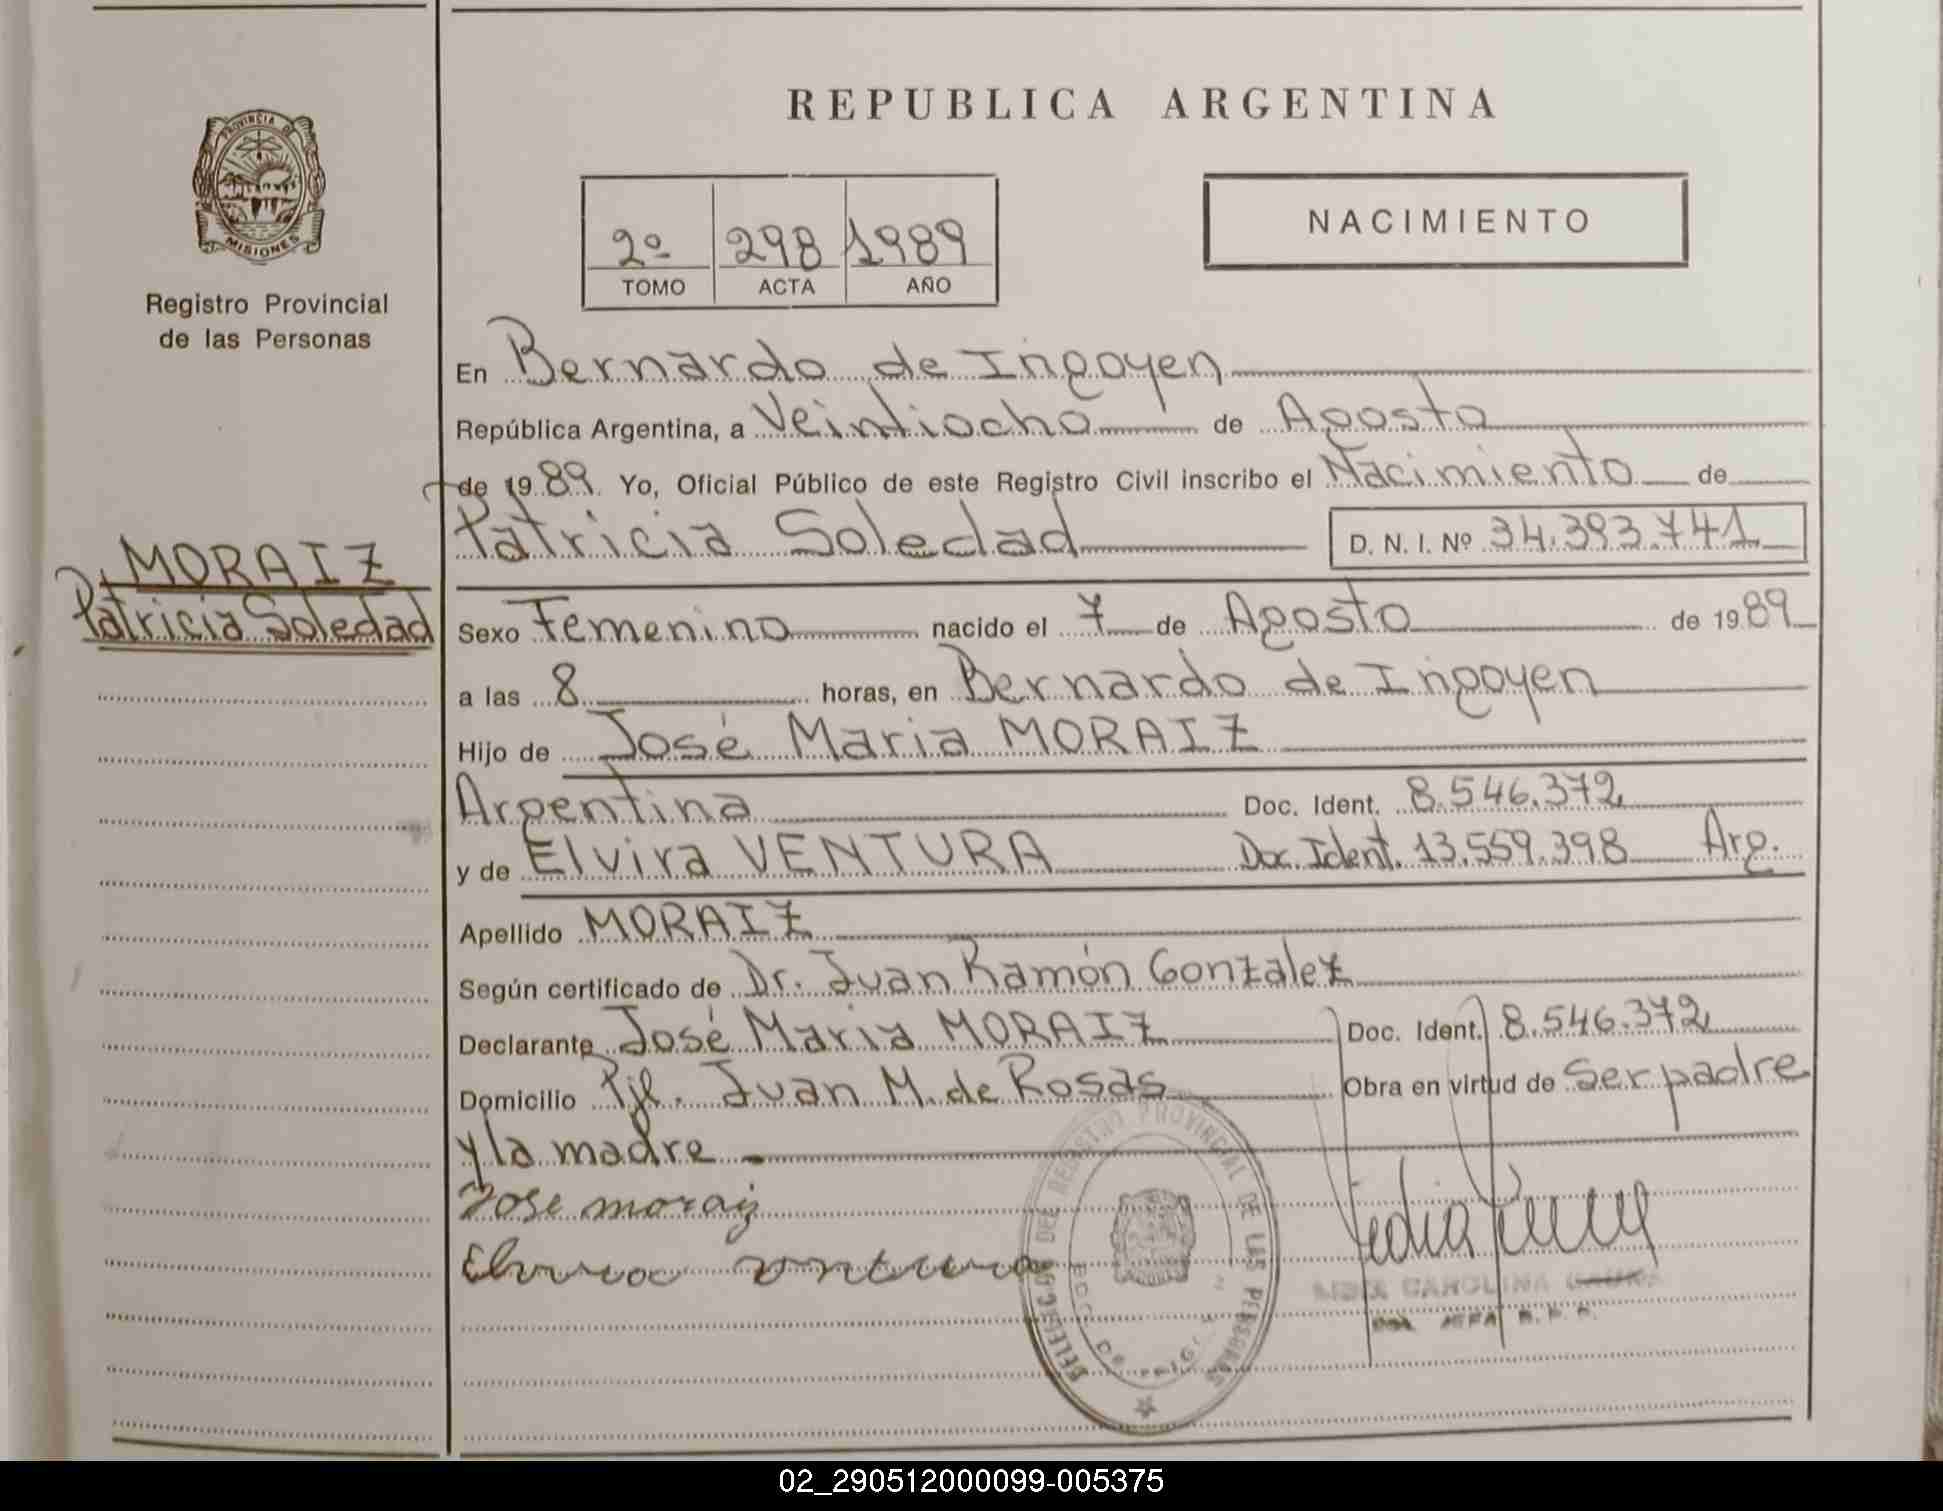 REPUBLICA ARGENTINA
PROVINCIA DE
MISIONES
Registro Provincial
de las Personas
2º 298 1989
TOMO ACTA AÑO
NACIMIENTO
En Bernardo de Irigoyen
República Argentina, a Veintiocho de Agosto
de 1989. Yo, Oficial Público de este Registro Civil inscribo el Nacimiento de
Patricia Soledad D. N. I. Nº 34.393.741
MORAIZ
Patricia Soledad
Sexo Femenino nacido el 7 de Agosto de 1989
a las 8 horas, en Bernardo de Irigoyen
Hijo de José Maria MORAIZ
Argentina Doc. Ident. 8.546.372
y de Elvira VENTURA Doc. Ident. 13.559.398 Arg.
Apellido MORAIZ
Según certificado de Dr. Juan Ramón Gonzalez
Declarante José Maria MORAIZ Doc. Ident. 8.546.372
Domicilio Pje. Juan M. de Rosas Obra en virtud de Ser padre
y la madre
Jose moraiz
Elvira ventura
DELEGACION DEL REGISTRO PROVINCIAL DE LAS PERSONAS
CAROLINA
02_290512000099-005375